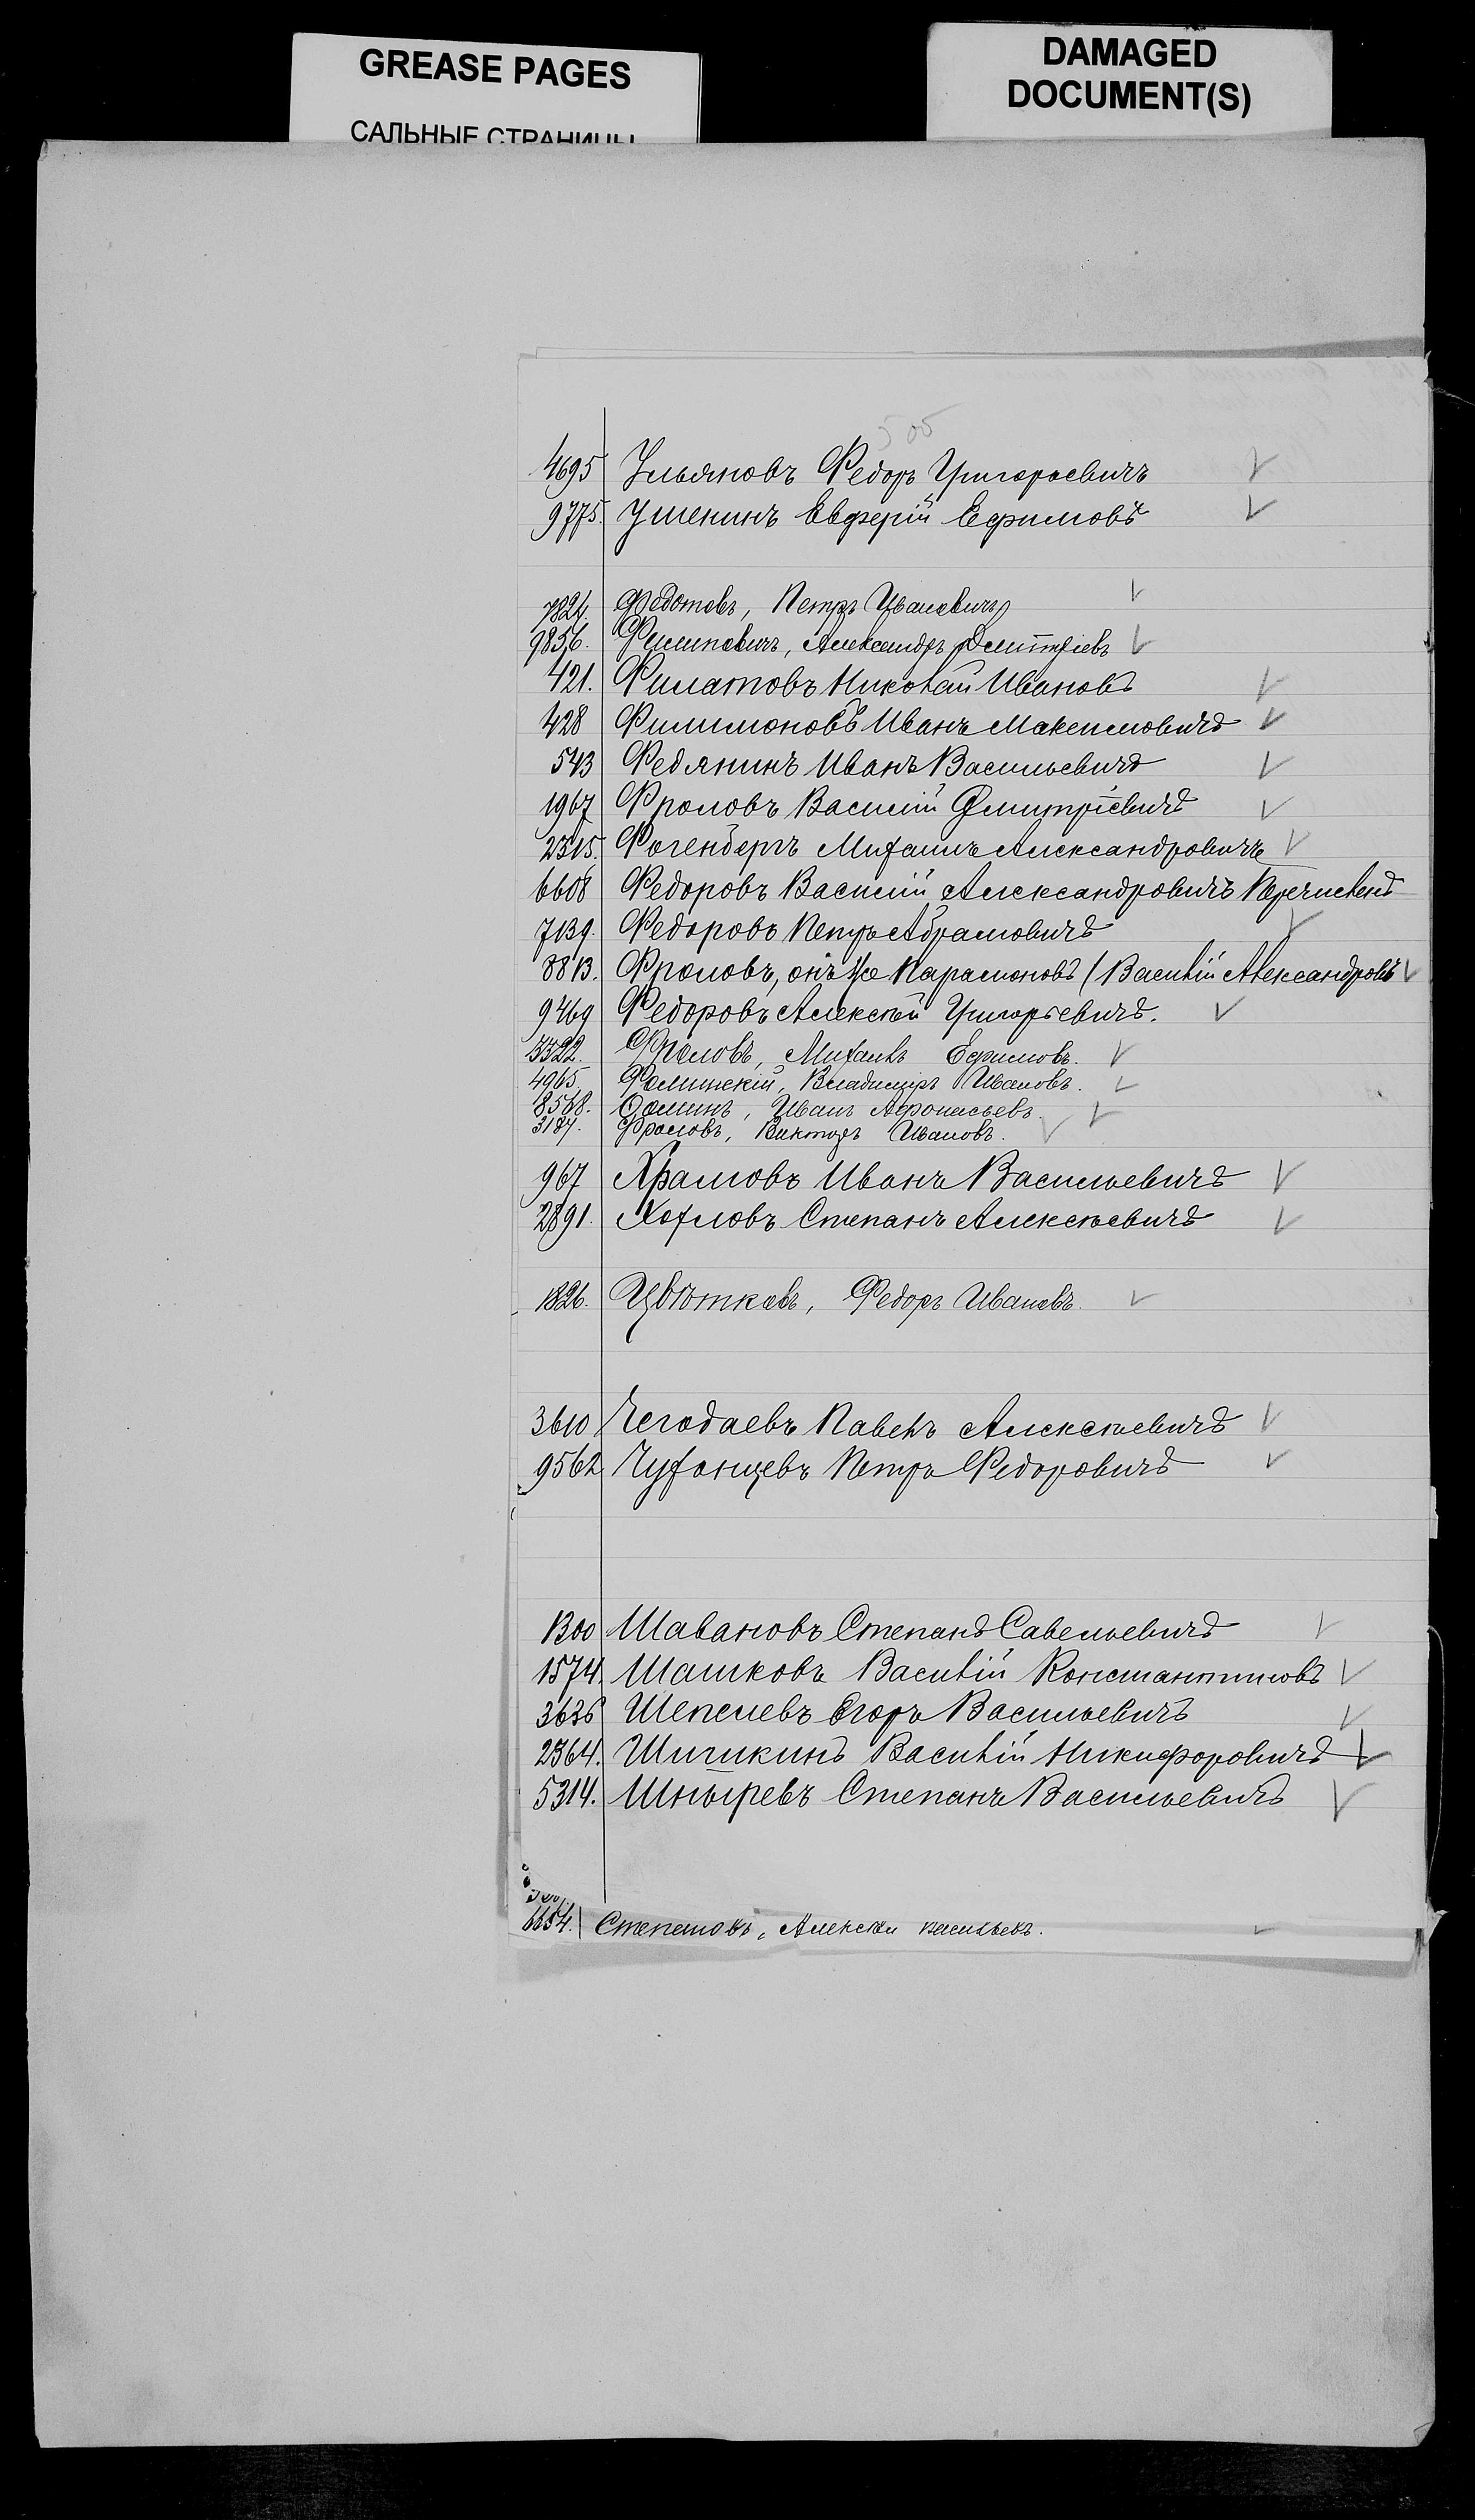 GREASE PAGES
САЛЬНЫЕ СТРАНИЦЫ
DAMAGED
DOCUMENT(S)
505
4695 Ульяновъ Федоръ Григорьевичъ
9775. Ушенинъ Евферій Ефимовъ
7824. Федотовъ, Петръ Ивановичъ
9856. Филиповичъ, Александръ Дмитріевъ
421. Филатовъ Николай Ивановъ
428 Филимоновъ Иванъ Максимовичъ
543 Федянинъ Иванъ Васильевичъ
1967 Фроловъ Василій Дмитріевичъ
2315. Фогенбергъ Михаилъ Александровичъ
6608 Федоровъ Василій Александровичъ Перечисленъ
7139. Федоровъ Петръ Абрамовичъ
8813. Фроловъ, онъ же Парамоновъ (Василій Александровъ
9469 Федоровъ Алексѣй Григорьевичъ.
3322. Фроловъ, Михаилъ Ефимовъ.
4965. Фоминскій, Владимиръ Ивановъ.
8568. Фоминъ, Иванъ Афонасьевъ.
3184. Фроловъ, Викторъ Ивановъ.
967 Храмовъ Иванъ Васильевичъ
2891. Хохловъ Степанъ Алексѣевичъ
1826. Цвѣтковъ, Федоръ Ивановъ.
3610 Чегодаевъ Павелъ Алексѣевичъ
9562 Чуханцевъ Петръ Федоровичъ
1300 Шавановъ Степанъ Савельевичъ
1574. Шашковъ Василій Константиновъ
3636 Шепелевъ Егоръ Васильевичъ
2364. Шишкинъ Василій Никифоровичъ
5314. Шныревъ Степанъ Васильевичъ
6654. Степановъ, Алексѣй Васильевъ.